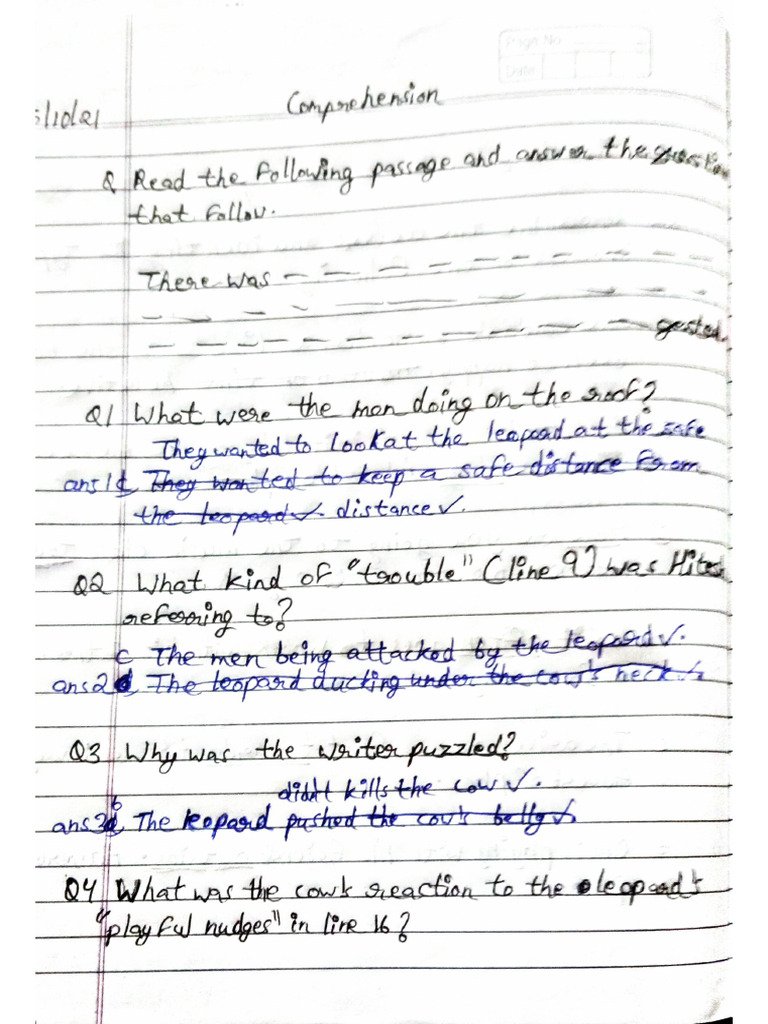 Page No
Date
5/10/21
Comprehension
Q Read the following passage and answer the question
that follow.
There was — — — — — — — — —
— — — — — — — — —
— — — — — — — — — — gested.
Q1 What were the men doing on the roof?
They wanted to look at the leopard at the safe
ans 1d They wanted to keep a safe distance from
the leopard ✓. distance ✓.
Q2 What kind of "trouble" (line 9) was Hites
referring to?
c The men being attacked by the leopard ✓.
ans2 d The leopard ducking under the cow's neck ✓
Q3 Why was the writer puzzled?
didn't kills the cow ✓.
b
ans3 The leopard pushed the cow's belly ✓.
Q4 What was the cow's reaction to the leopard's
"playful nudges" in line 16?